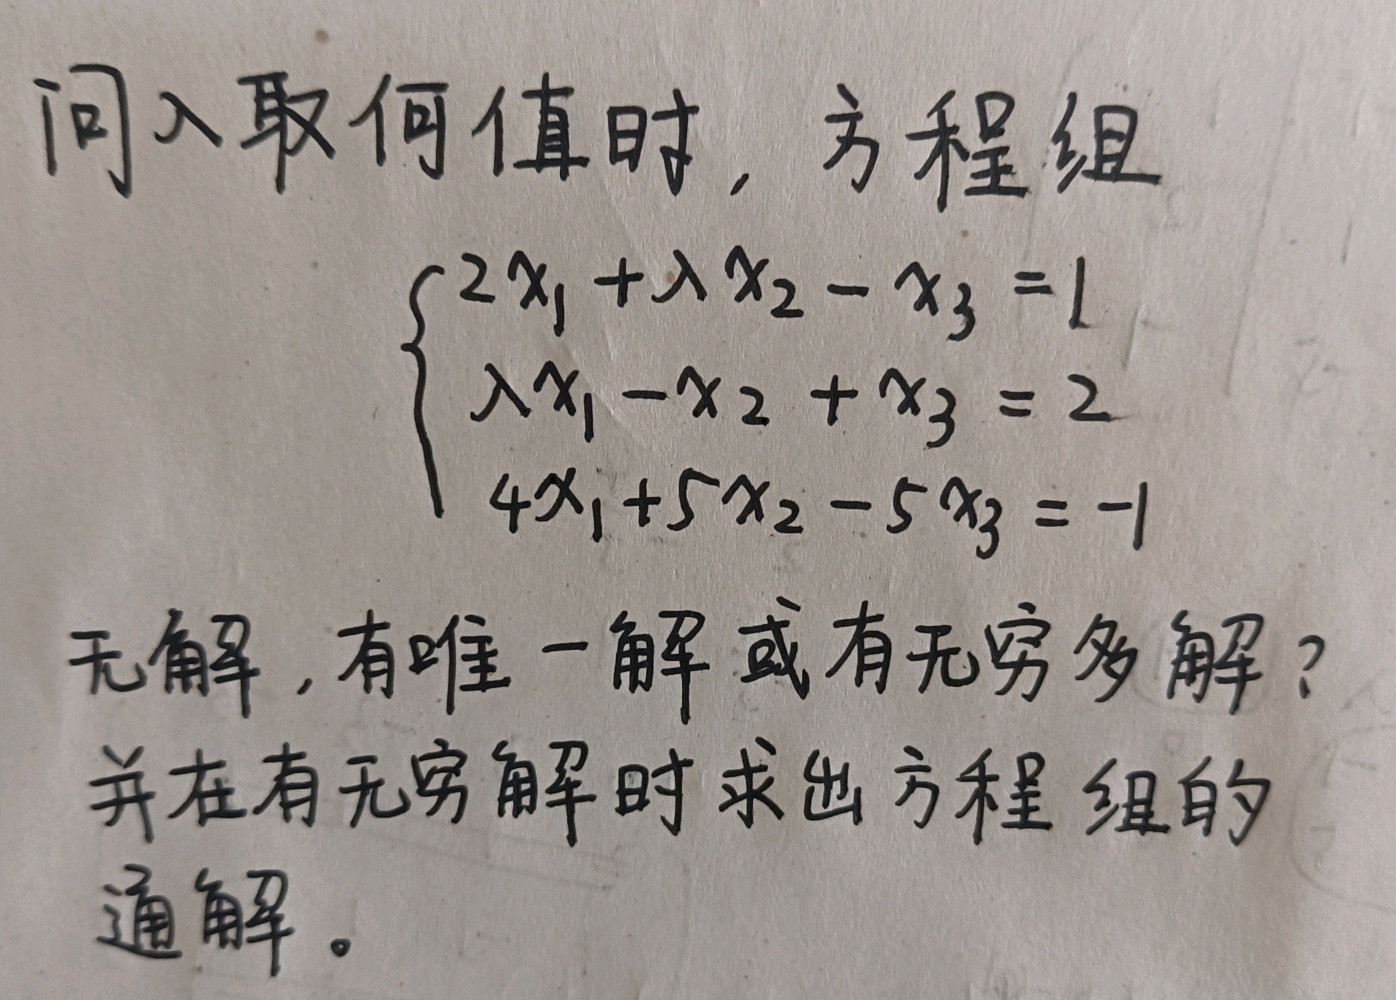 问λ取何值时，方程组
2x₁+λx₂-x₃=1
λx₁-x₂+x₃=2
4x₁+5x₂-5x₃=-1
无解，有唯一解或有无穷多解？
并在有无穷解时求出方程组的
通解。